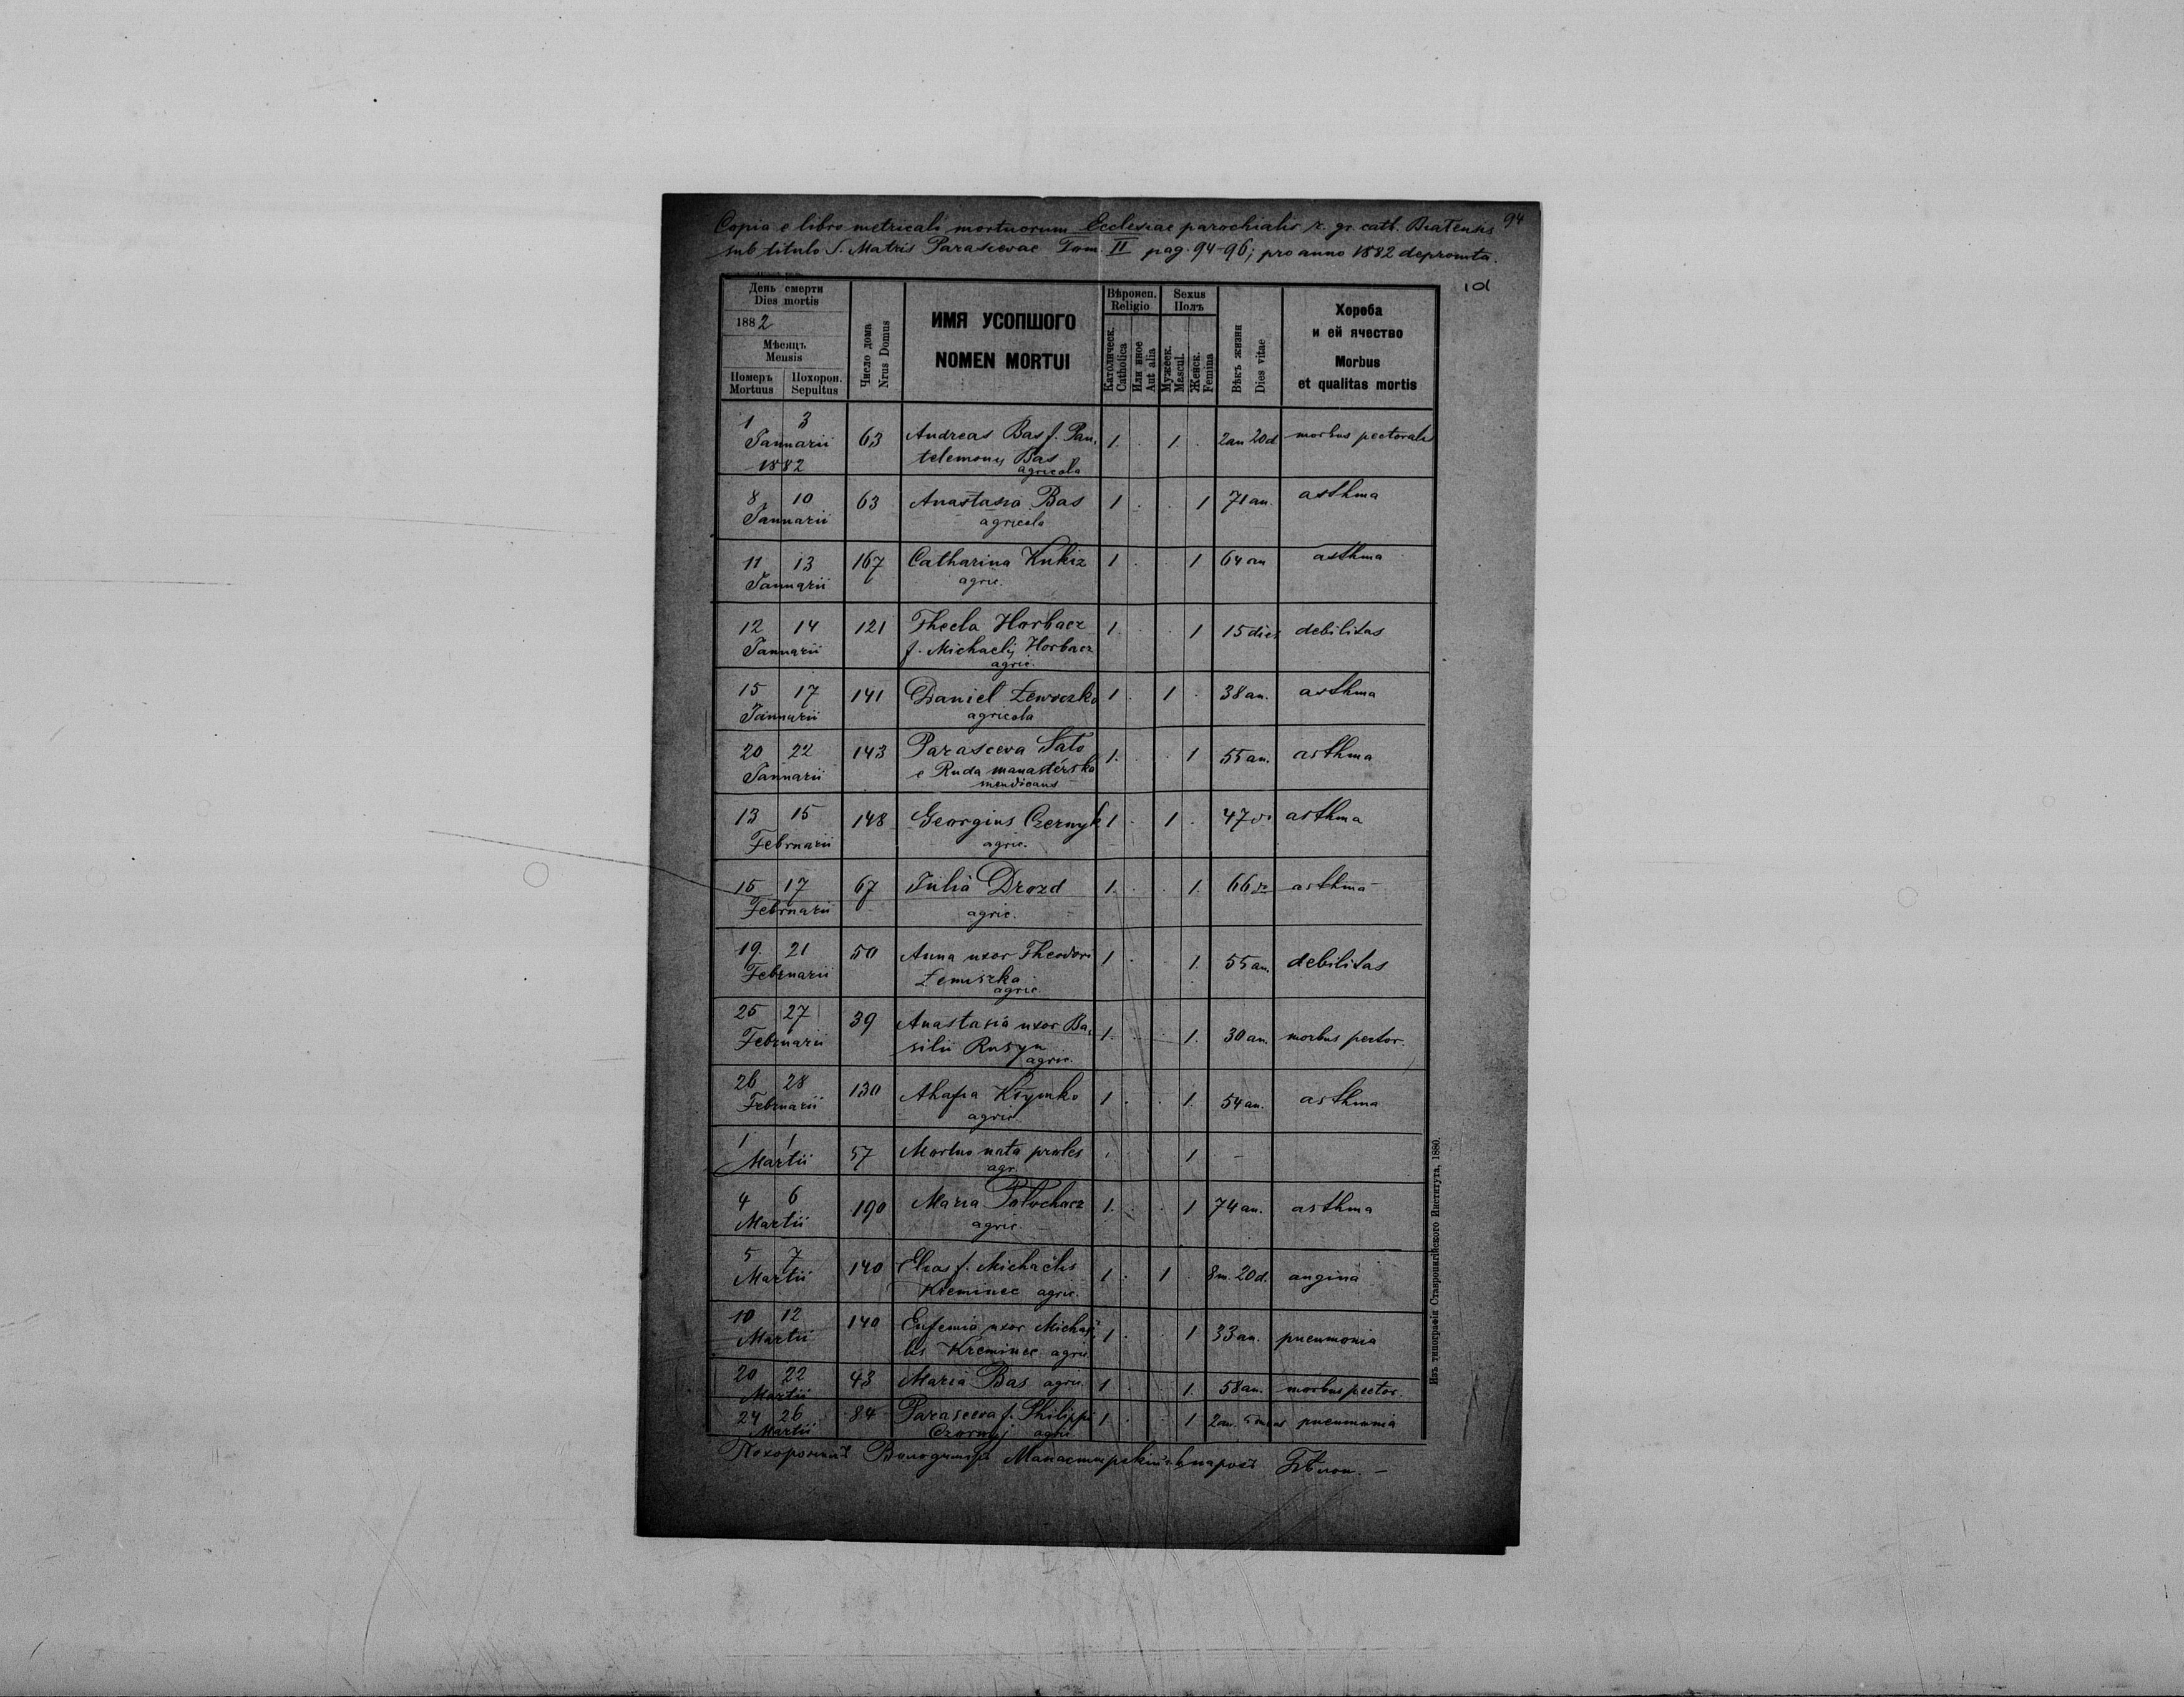 94
Copia e libro metricali mortuorum Ecclesiae parochialis r. gr. cath.
sub titulo S. Matris Parascevae Tom. II pag. 94-96; pro anno 1882 depromta.
День смерти
Dies mortis
1882
Мѣсяцъ
Mensis
Померъ Mortuus
Похорон. Sepultus
Число дома
Nrus Domus
ИМЯ УСОПШОГО
NOMEN MORTUI
Вѣроисп.
Religio
Католическ.
Catholica
Или иное
Aut alia
Sexus
Полъ
Мужеск.
Mascul.
Женск.
Femina
Вѣкъ жизни
Dies vitae
Хороба
и ей ячество
Morbus
et qualitas mortis
1 3 Januarii 1882 63 Andreas Bas f. Pan-
telemonis Bas agricola 1. . 1. . 2an 20d. morbus pectoralis
8 10 Januarii 63 Anastasia Bas
agricola 1 . . 1 71 an. asthma
11 13 Januarii 167 Catharina Kukiz
agric. 1 . . 1 64 an asthma
12 14 Januarii 121 Thecla Horbacz
f. Michaelis Horbacz
agric. 1. . . 1 15 dies debilitas
15 17 Januarii 141 Daniel
agricola 1 . 1 . 38 an. asthma
20 22 Januarii 143 Parasceva
e Ruda manasterska
mendicans 1. . . 1 55 an. asthma
13 15 Februarii 148 Georgius Czernyk
agric. 1 . 1 . 47 asthma
15 17 Februarii 67 Julia Drozd
agric. 1. . . 1. 66 asthma
19. 21 Februarii 50 Anna uxor Theodori
agric. 1 . . 1. 55 an. debilitas
25 27 Februarii 39 Anastasia uxor Ba-
silii Rusyn
agric. 1. . . 1. 30 an. morbus pector.
26 28 Februarii 130 Ahafia Klymko
agric. 1 . . 1. 54 an. asthma
1 1 Martii 57 Mortuo nata proles
agr. . . 1 -
4 6 Martii 190 Maria
agric. 1. . . 1 74 an. asthma
5 7 Martii 140 Elias f. Michaelis
Kreminec agric. 1 . 1 . 8m. 20d. angina
10 12 Martii 140 Eufemia uxor Michae-
lis Kreminec agric. 1 . . 1 33 an. pneumonia
20 22 Martii 43 Maria Bas agric. 1 . . 1. 58 an. morbus pector.
24 26 Martii 84 Parasceva f. Philippi
Czornyj agric. 1 . . 1 2an. pneumonia
Володимиръ Манастырскій
Изъ типографіи Ставропигійского Института, 1880.